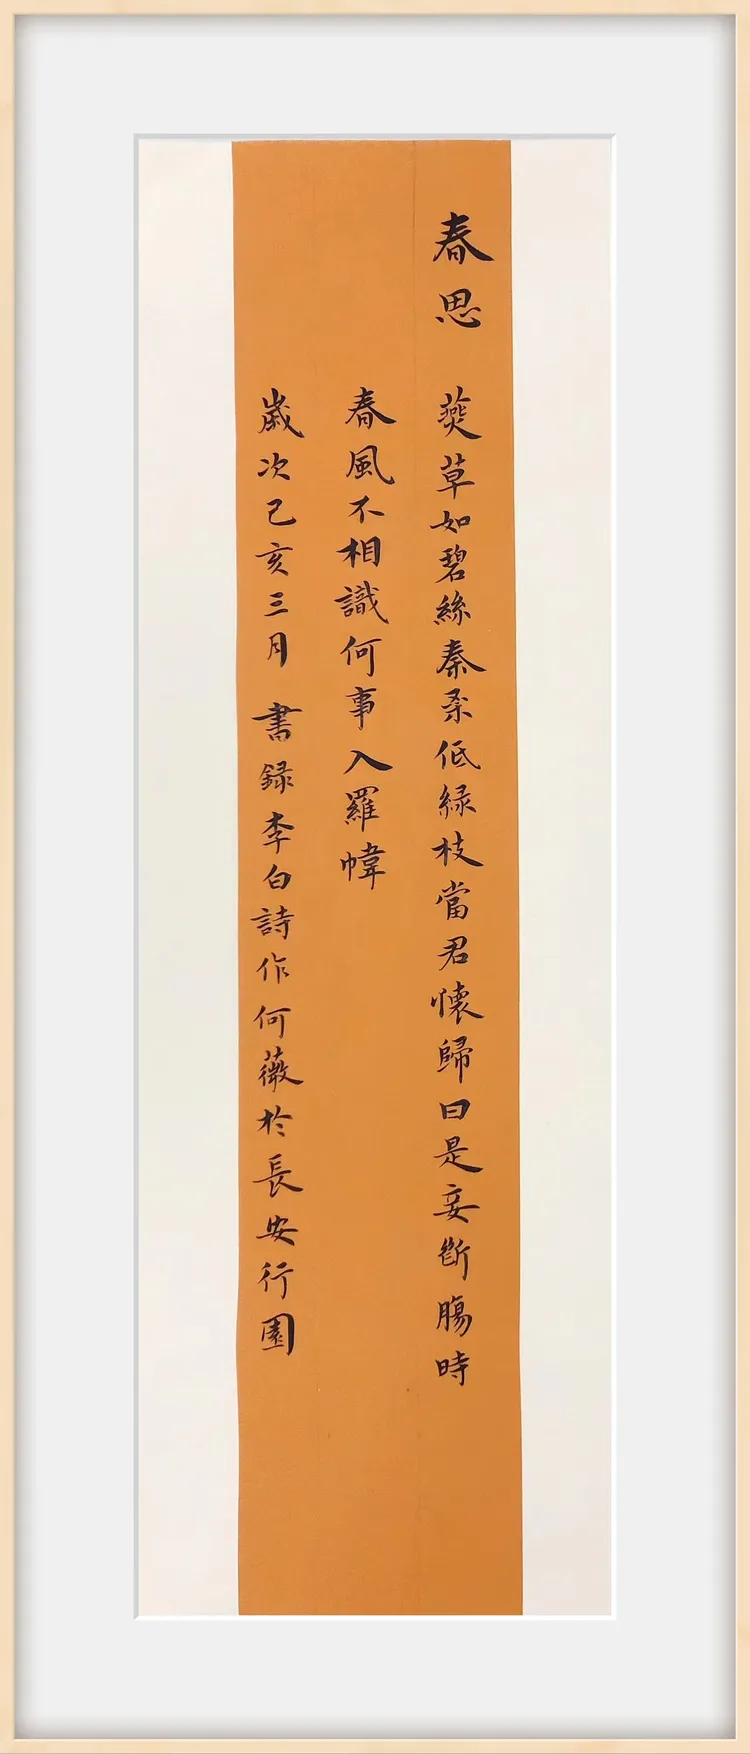 春思 燕草如碧絲秦桑低緑枝當君懷歸日是妾斷腸時
春風不相識何事入羅幃
歲次己亥三月 書録李白詩作何薇於長安行園